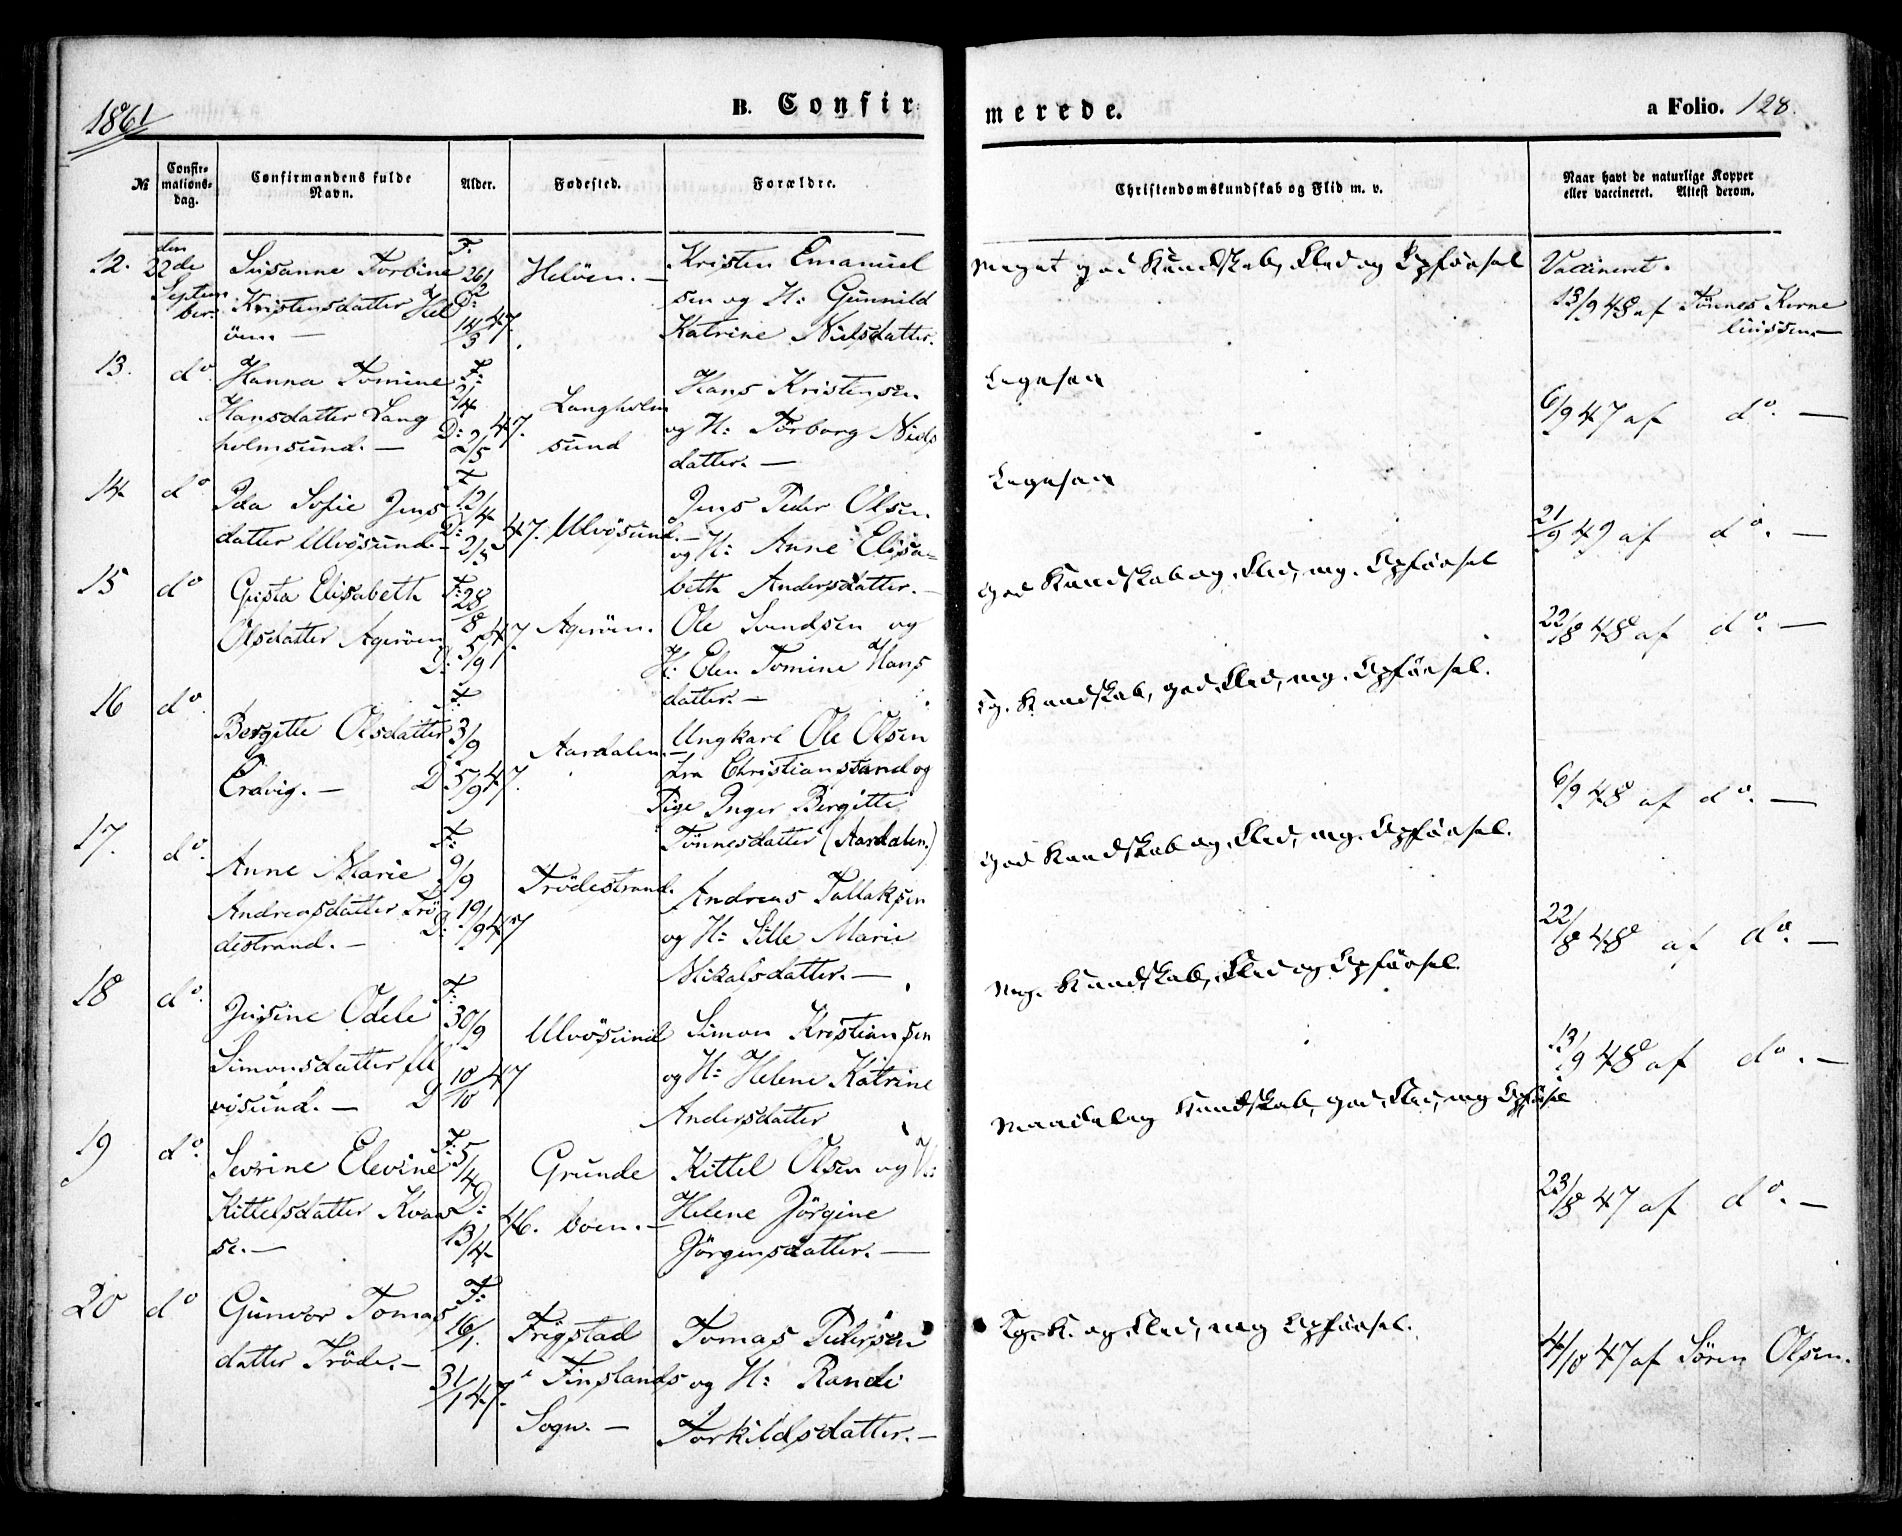 1861
B. Confirmerede.
a Folio. 128.
№
Confirmations-dag.
Confirmandens fulde Navn.
Alder.
Fødested.
Forældre.
Christendomskundskab og Flid m. v.
Naar havt de naturlige Kopper eller vaccineret. Attest derom.
12.
den 22de September.
Susanne Torbine
Kristensdatter Hel
öen. —
F. 26/2
D: 14/3 47.
Helöen. —
Kristen Emanuel
sen og H: Gunnild
Katrine Nielsdatter.
Meget god Kundskab, Flid og Opførsel
Vaccineret.
13/9 48 af Tönnes Korne
liussen. —
13.
do.
Hanna Tomine
Hansdatter Lang
holmsund. —
F: 2/4
D: 2/5 47.
Langholm
sund
Hans Kristensen
og H: Torborg Niels
datter. —
Ligesaa
6/9 47 af do. —
14.
do
Ida Sofie Jens
datter Ulvösund. —
F 12/4
D: 2/5 47.
Ulvösund. —
Jens Peder Olsen
og H: Anne Elisa-
beth Andersdatter. —
Ligesaa
21/9 49 af do. —
15
do
Gusta Elisabeth
Olsdatter Ageröen
F: 28/8
D: 5/9 47.
Ageröen.
Ole Svendsen og
H: Elen Tomine Hans
datter. —
god Kundskab og Flid, mg. Opførsel
22/8 48 af do. —
16
do.
Bergitte Olsdatter
Eravig. —
F: 3/9
D 5/9 47.
Aardalen. —
Ungkarl Ole Olsen
fra Christianssand og
Pige Inger Bergitte
Tönnesdatter (Aardalen.)
Tg. Kundskab, god Flid, mg. Opførsel.
6/9 48 af do. —
17.
do.
Anne Marie
Andreasdatter Trö
destrand. —
F: 9/9
D: 19/9 47
Trödestrand.
Andreas Tallaksen
og H: Sille Marie
Mikalsdatter. —
god Kundskab og Flid, mg. Opførsel.
22/8 48 af do. —
18
do.
Jusine Odele
Simonsdatter Ul
vösund. —
F: 30/9
D 10/10 47
Ulvösund
Simon Kristiansen
og H: Helene Katrine
Andersdatter
Mg. Kundskab, Flid og Opførsel.
13/9 48 af do. —
19
do.
Sevrine Elevine
Kittelsdatter Kvaa
se. —
F: 5/4
D: 13/4 46.
Grunde
voen. —
Kittel Olsen og H:
Helene Jörgine
Jörgensdatter. —
Maadelig Kundskab, god Flid, mg Opførsel
23/8 47 af do. —
20
do
Gunvor Tomas
datter Tröde. —
F: 16/1.
31/1 47.
Frigstad
i Finslands
Sogn. —
Tomas Pedersen
og H: Randi
Torkildsdatter. —
Tg. K. og Flid, mg Opførsel.
4/10 47 af Sören Olsen.